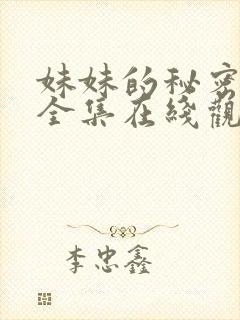 妹妹的秘密
全集在线觀
李忠鑫